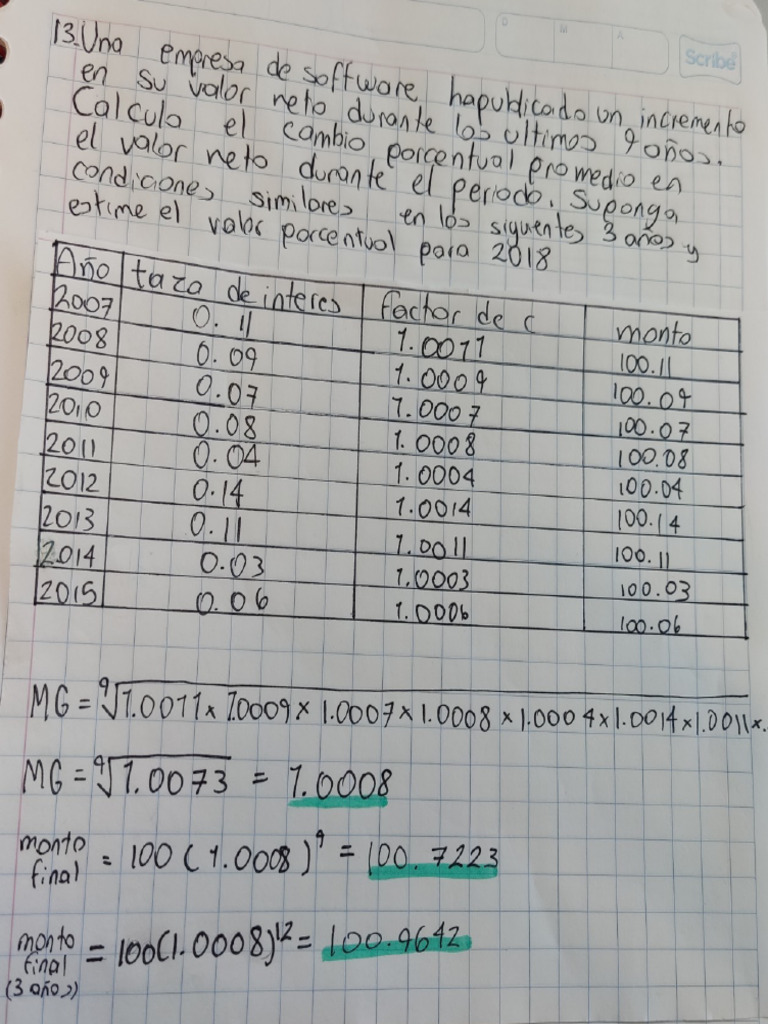 D M A
Scribe
13. Una empresa de software hapublicado un incremento
en su valor neto durante los ultimos 9 años.
Calcula el cambio porcentual promedio en
el valor neto durante el periodo. Suponga
condiciones similares en los siguentes 3 años y
estime el valor porcentual para 2018
Año taza de interes factor de c monto
2007 0.11 1.0011 100.11
2008 0.09 1.0009 100.09
2009 0.07 1.0007 100.07
2010 0.08 1.0008 100.08
2011 0.04 1.0004 100.04
2012 0.14 1.0014 100.14
2013 0.11 1.0011 100.11
2014 0.03 1.0003 100.03
2015 0.06 1.0006 100.06
MG = ⁹√1.0011 x 1.0009 x 1.0007 x 1.0008 x 1.0004 x 1.0014 x 1.0011 x.
MG = ⁹√1.0073 = 1.0008
monto final = 100 (1.0008)⁹ = 100.7223
monto final (3 años) = 100(1.0008)¹² = 100.9642